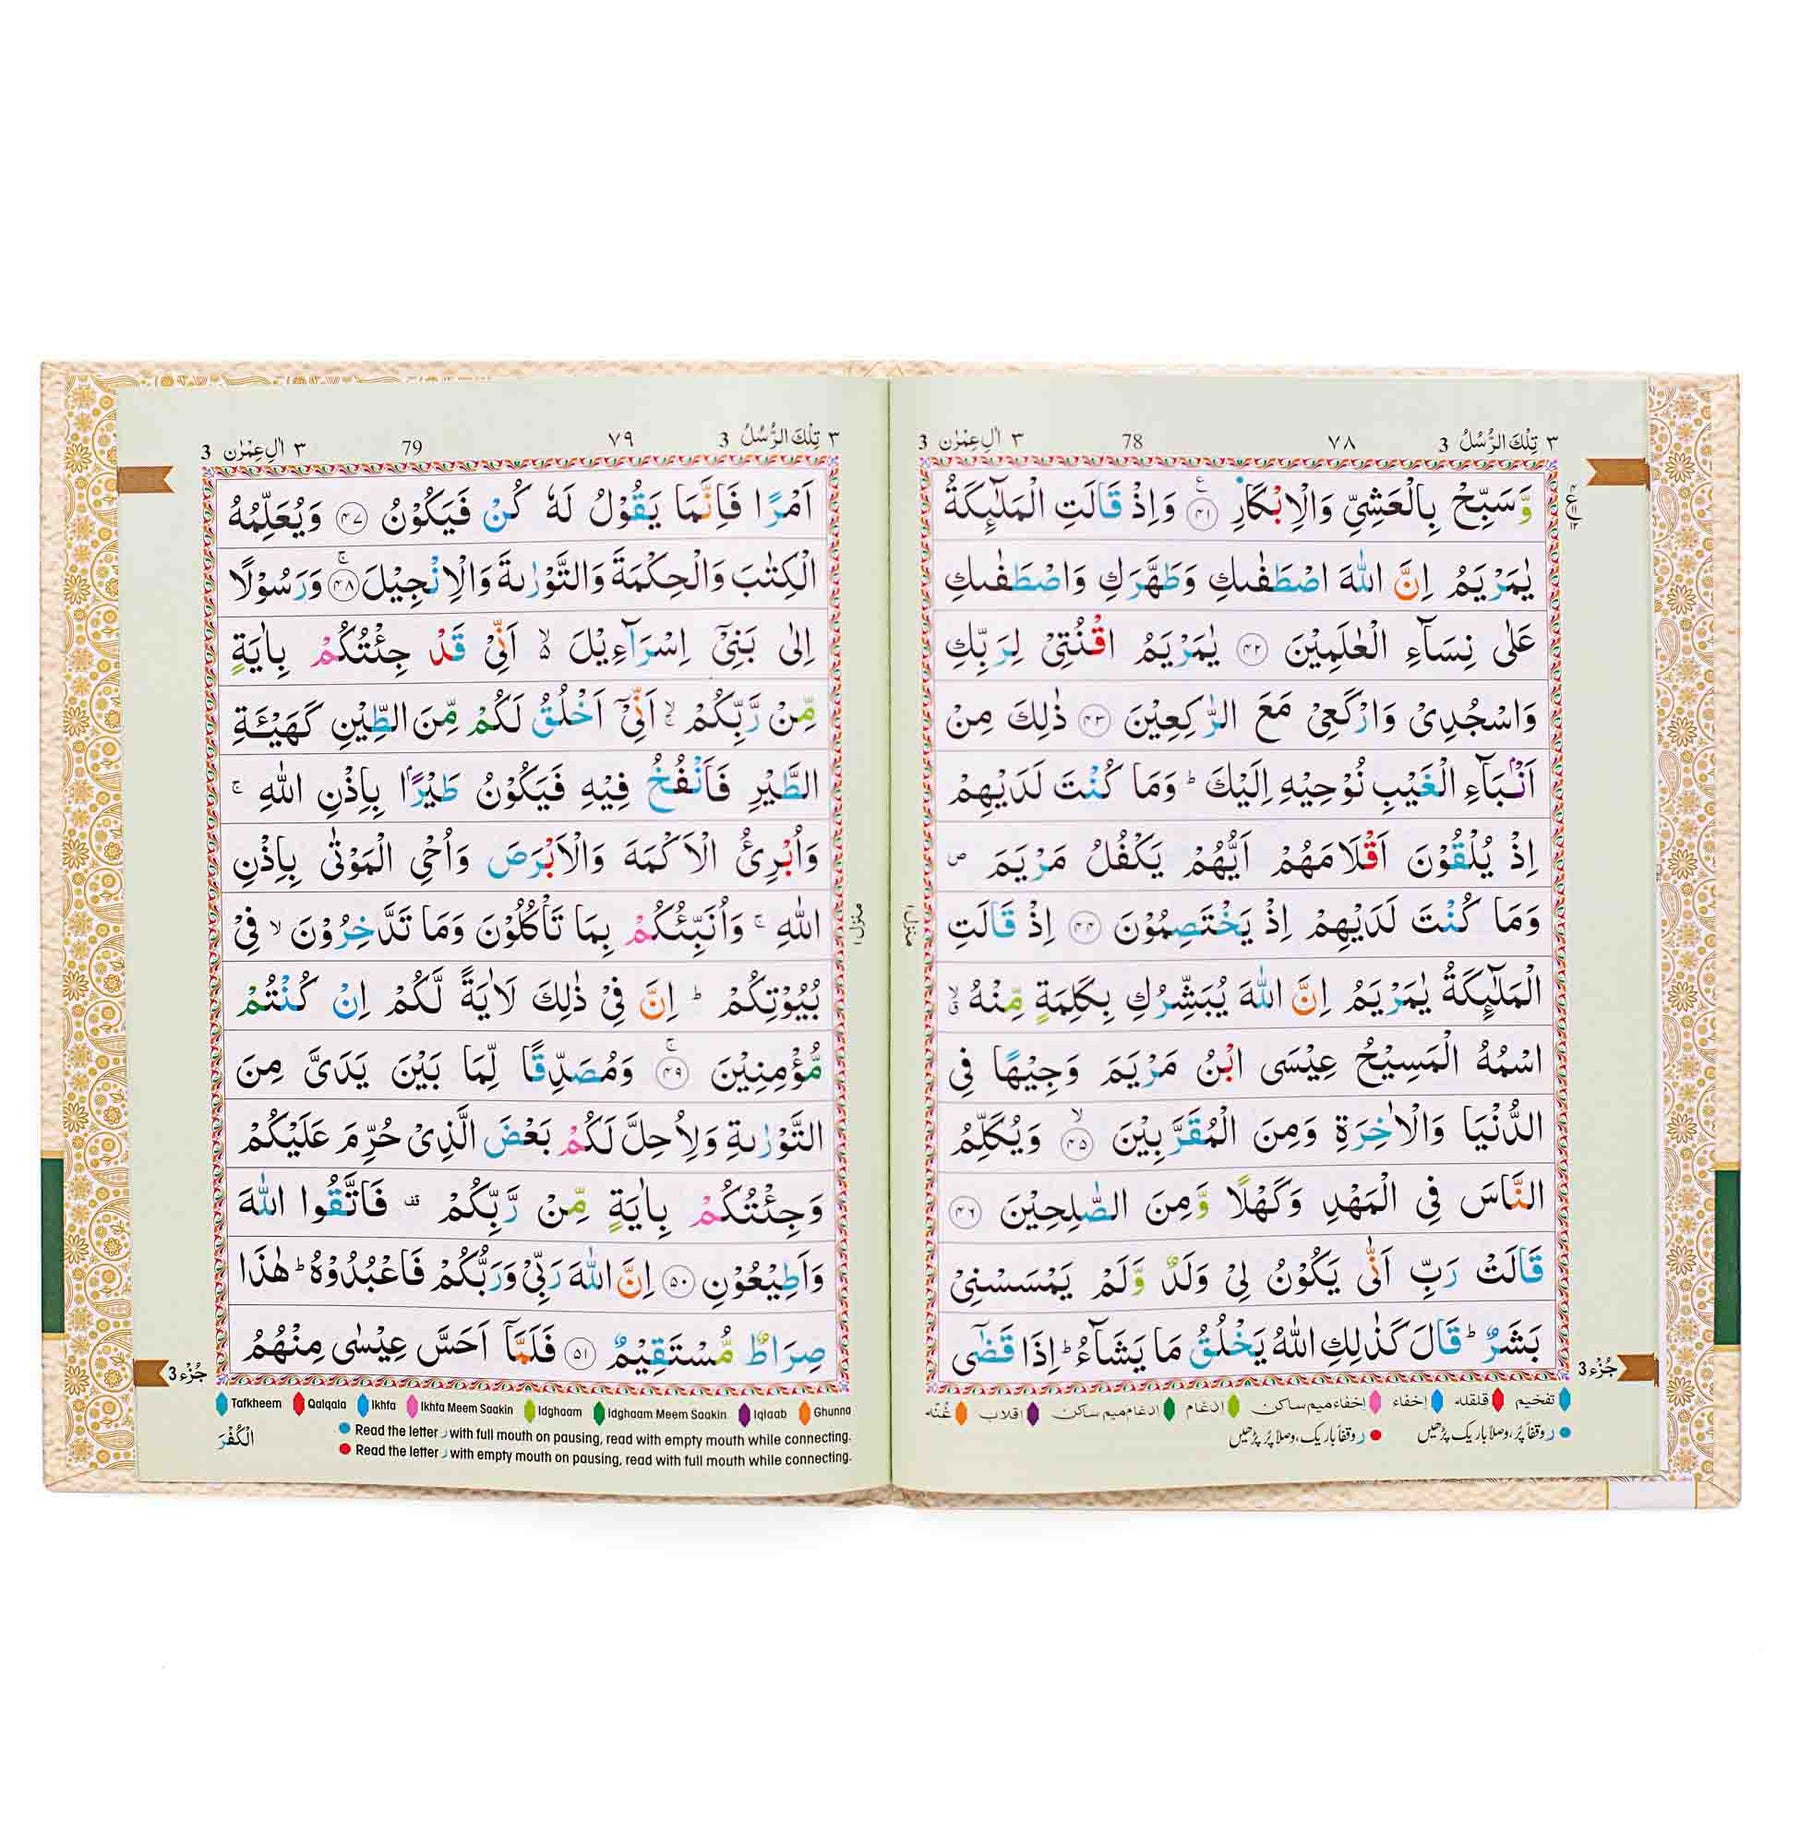 ٣ تِلْكَ الرُّسُلُ 3 ٧٨ 78 ٣ اٰلِ عِمْرٰن 3
وَّسَبِّحْ بِالْعَشِيِّ وَالْاِبْكَارِ ﴿۴۱﴾ وَاِذْ قَالَتِ الْمَلٰٓئِكَةُ
يٰمَرْيَمُ اِنَّ اللّٰهَ اصْطَفٰىكِ وَطَهَّرَكِ وَاصْطَفٰىكِ
عَلٰى نِسَآءِ الْعٰلَمِيْنَ ﴿۴۲﴾ يٰمَرْيَمُ اقْنُتِىْ لِرَبِّكِ
وَاسْجُدِىْ وَارْكَعِىْ مَعَ الرّٰكِعِيْنَ ﴿۴۳﴾ ذٰلِكَ مِنْ
اَنْۢبَآءِ الْغَيْبِ نُوْحِيْهِ اِلَيْكَ ؕ وَمَا كُنْتَ لَدَيْهِمْ
اِذْ يُلْقُوْنَ اَقْلَامَهُمْ اَيُّهُمْ يَكْفُلُ مَرْيَمَ ۪
وَمَا كُنْتَ لَدَيْهِمْ اِذْ يَخْتَصِمُوْنَ ﴿۴۴﴾ اِذْ قَالَتِ
الْمَلٰٓئِكَةُ يٰمَرْيَمُ اِنَّ اللّٰهَ يُبَشِّرُكِ بِكَلِمَةٍ مِّنْهُ ۙ
اسْمُهُ الْمَسِيْحُ عِيْسَى ابْنُ مَرْيَمَ وَجِيْهًا فِى
الدُّنْيَا وَالْاٰخِرَةِ وَمِنَ الْمُقَرَّبِيْنَ ﴿۴۵﴾ ۙ وَيُكَلِّمُ
النَّاسَ فِى الْمَهْدِ وَكَهْلًا وَّمِنَ الصّٰلِحِيْنَ ﴿۴۶﴾
قَالَتْ رَبِّ اَنّٰى يَكُوْنُ لِىْ وَلَدٌ وَّلَمْ يَمْسَسْنِىْ
بَشَرٌ ؕ قَالَ كَذٰلِكِ اللّٰهُ يَخْلُقُ مَا يَشَآءُ ؕ اِذَا قَضٰٓى
جُزْء 3
منزل ۱
تفخیم قلقلہ إخفاء إخفاء میم ساكن إدغام إدغام میم ساكن اقلاب غُنّه
ر وقفاً پُر، وصلاً باریک پڑھیں ر وقفاً باریک، وصلاً پُر پڑھیں
٣ تِلْكَ الرُّسُلُ 3 ٧٩ 79 ٣ اٰلِ عِمْرٰن 3
اَمْرًا فَاِنَّمَا يَقُوْلُ لَهٗ كُنْ فَيَكُوْنُ ﴿۴۷﴾ وَيُعَلِّمُهُ
الْكِتٰبَ وَالْحِكْمَةَ وَالتَّوْرٰىةَ وَالْاِنْجِيْلَ ﴿۴۸﴾ ۚ وَرَسُوْلًا
اِلٰى بَنِىْٓ اِسْرَآءِيْلَ ۙ اَنِّىْ قَدْ جِئْتُكُمْ بِاٰيَةٍ
مِّنْ رَّبِّكُمْ ۙ اَنِّىْٓ اَخْلُقُ لَكُمْ مِّنَ الطِّيْنِ كَهَيْئَةِ
الطَّيْرِ فَاَنْفُخُ فِيْهِ فَيَكُوْنُ طَيْرًۢا بِاِذْنِ اللّٰهِ ۚ
وَاُبْرِئُ الْاَكْمَهَ وَالْاَبْرَصَ وَاُحْىِ الْمَوْتٰى بِاِذْنِ
اللّٰهِ ۚ وَاُنَبِّئُكُمْ بِمَا تَاْكُلُوْنَ وَمَا تَدَّخِرُوْنَ ۙ فِىْ
بُيُوْتِكُمْ ؕ اِنَّ فِىْ ذٰلِكَ لَاٰيَةً لَّكُمْ اِنْ كُنْتُمْ
مُّؤْمِنِيْنَ ﴿۴۹﴾ ۚ وَمُصَدِّقًا لِّمَا بَيْنَ يَدَىَّ مِنَ
التَّوْرٰىةِ وَلِاُحِلَّ لَكُمْ بَعْضَ الَّذِىْ حُرِّمَ عَلَيْكُمْ
وَجِئْتُكُمْ بِاٰيَةٍ مِّنْ رَّبِّكُمْ ۟ فَاتَّقُوا اللّٰهَ
وَاَطِيْعُوْنِ ﴿۵۰﴾ اِنَّ اللّٰهَ رَبِّىْ وَرَبُّكُمْ فَاعْبُدُوْهُ ؕ هٰذَا
صِرَاطٌ مُّسْتَقِيْمٌ ﴿۵۱﴾ فَلَمَّآ اَحَسَّ عِيْسٰى مِنْهُمُ
جُزْء 3
منزل ۱
Tafkheem Qalqala Ikhfa Ikhfa Meem Saakin Idghaam Idghaam Meem Saakin Iqlaab Ghunna
Read the letter ر with full mouth on pausing, read with empty mouth while connecting.
Read the letter ر with empty mouth on pausing, read with full mouth while connecting.
الْكُفْرَ